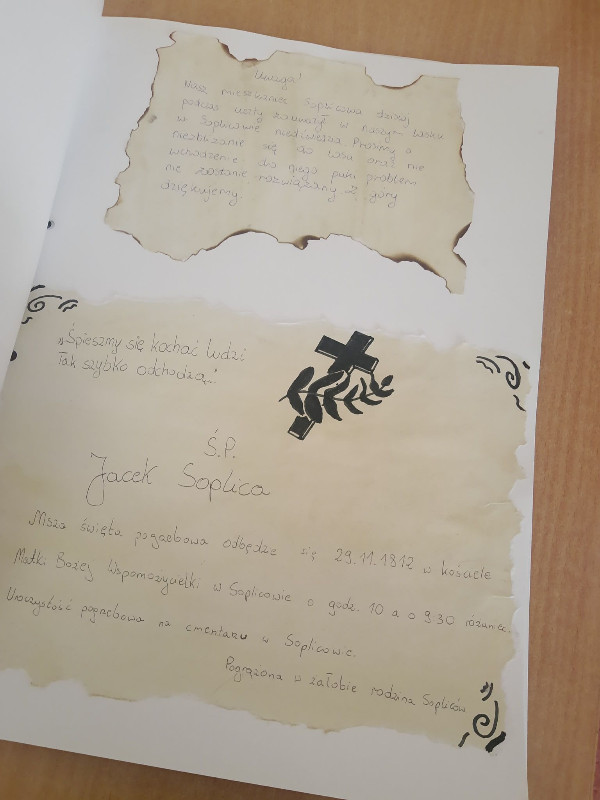 Uwaga!
Nasz mieszkaniec Soplicowa dzisiaj
podczas uczty zauważył w naszym lasku
w Soplicowie niedźwiedzia. Prosimy o
niezbliżanie się do lasu oraz nie
wchodzenie do niego puki problem
nie zostanie rozwiązany. Z góry
dziękujemy.
„Śpieszmy się kochać ludzi
Tak szybko odchodzą..."
Ś.P.
Jacek Soplica
Msza święta pogrzebowa odbędzie się 29.11.1812 w kościele
Matki Bożej Wspomożycielki w Soplicowie o godz. 10 a o 9 30 różaniec.
Uroczystość pogrzebowa na cmentarzu w Soplicowie.
Pogrążona w żałobie rodzina Sopliców